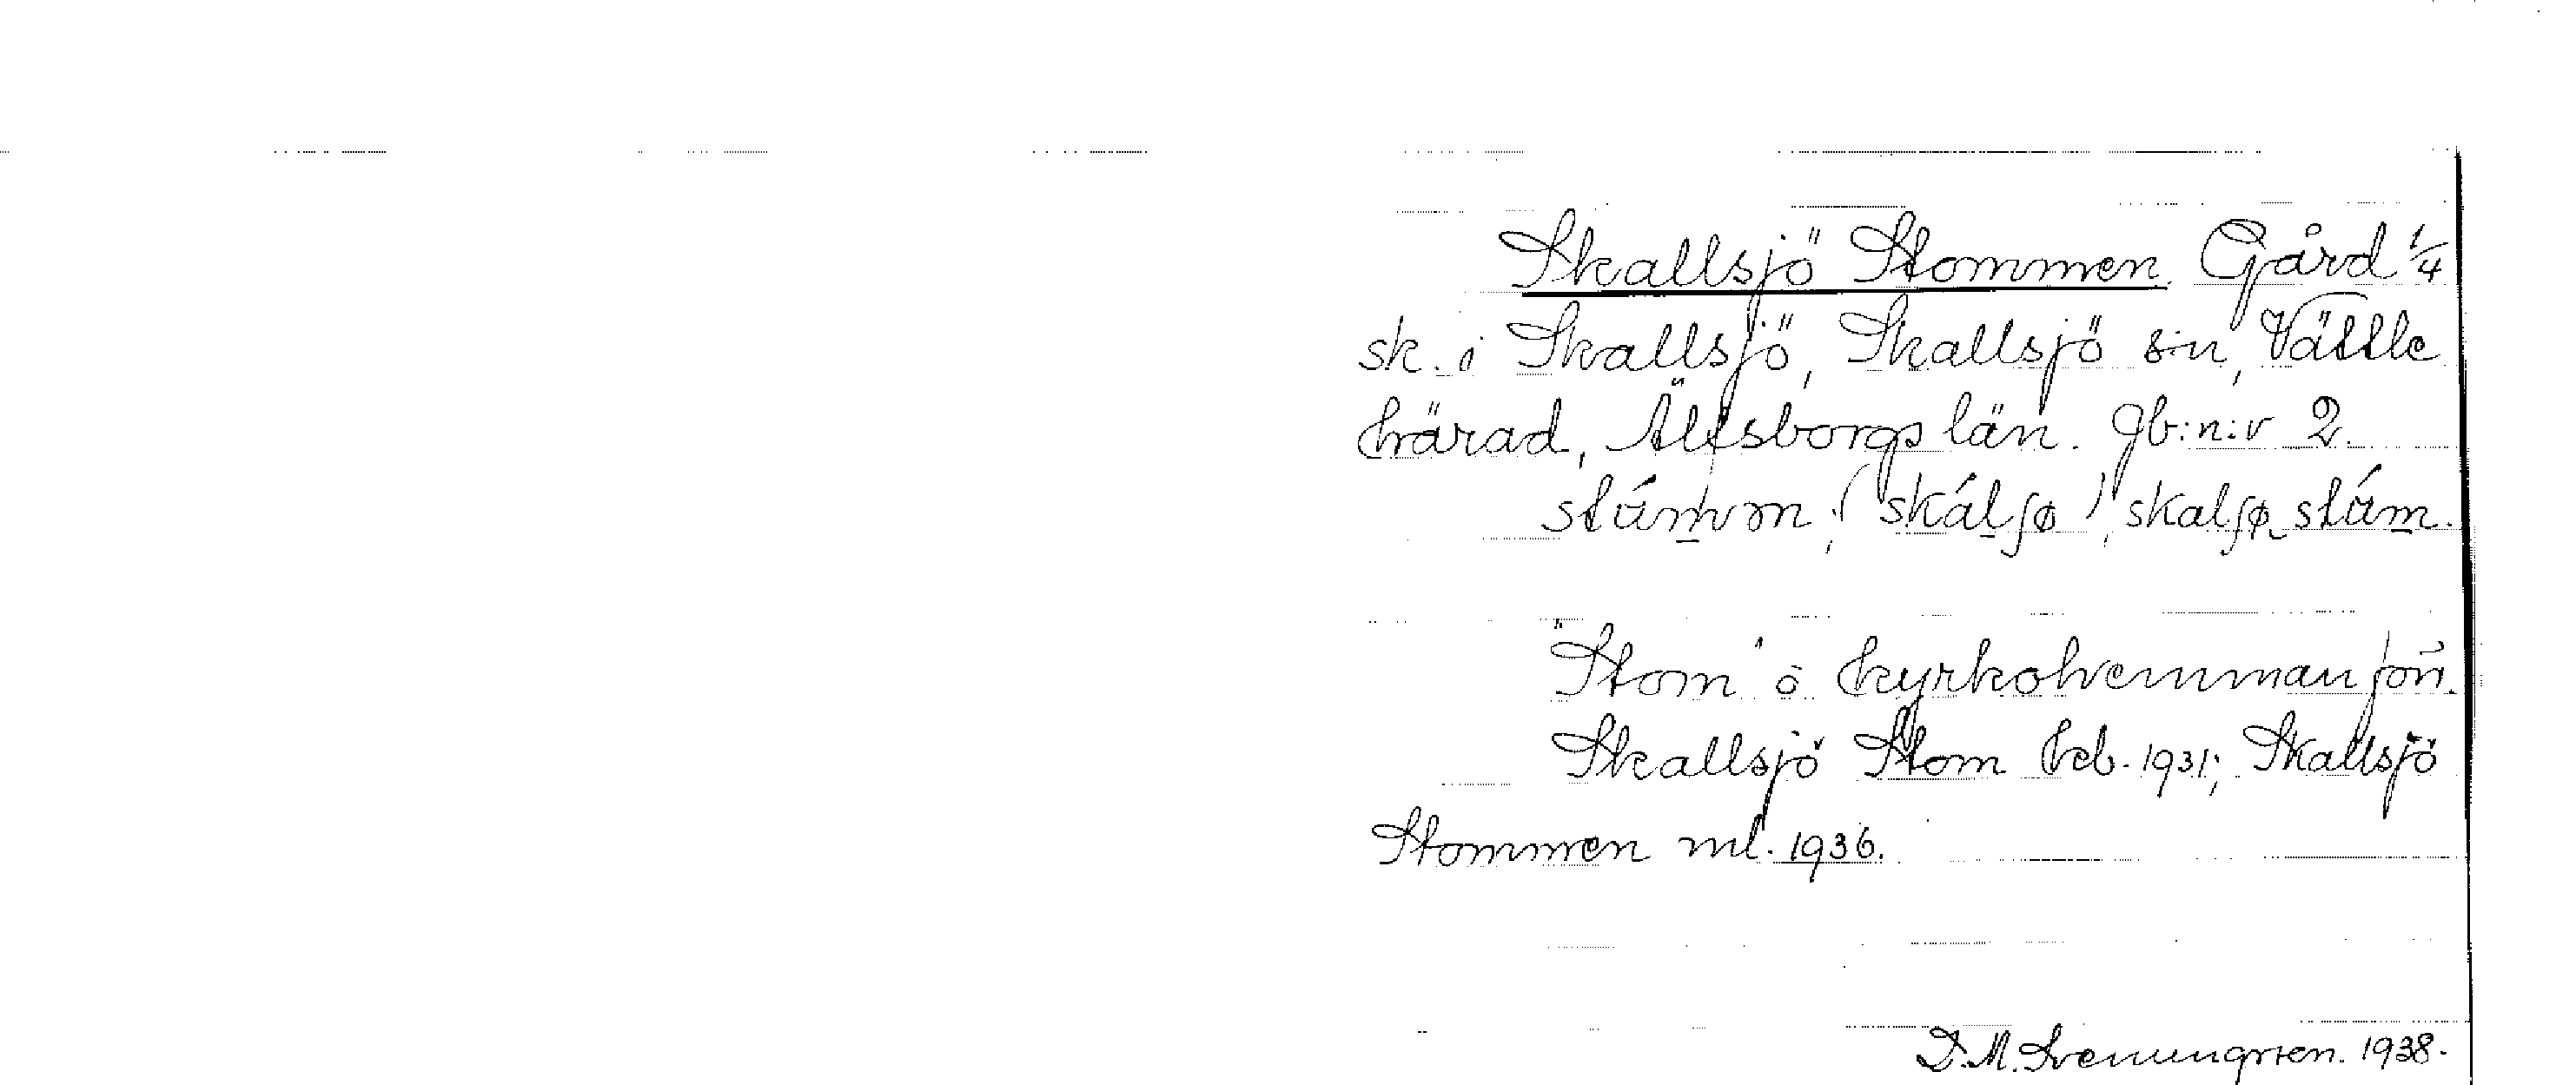 Skallsjö Stommen. Gård 1/4
sk. i Skallsjö, Skallsjö sn, Vättle
härad, Älfsborgs län. Jb:n:r 2.
stúm̲m ; (skál̲ʃø), skalʃø stúm̲.
"Stom" ö kyrkohemman
Skallsjö Stom Heb. 1931; Skallsjö
Stommen ml. 1936.
D.M. 1938.